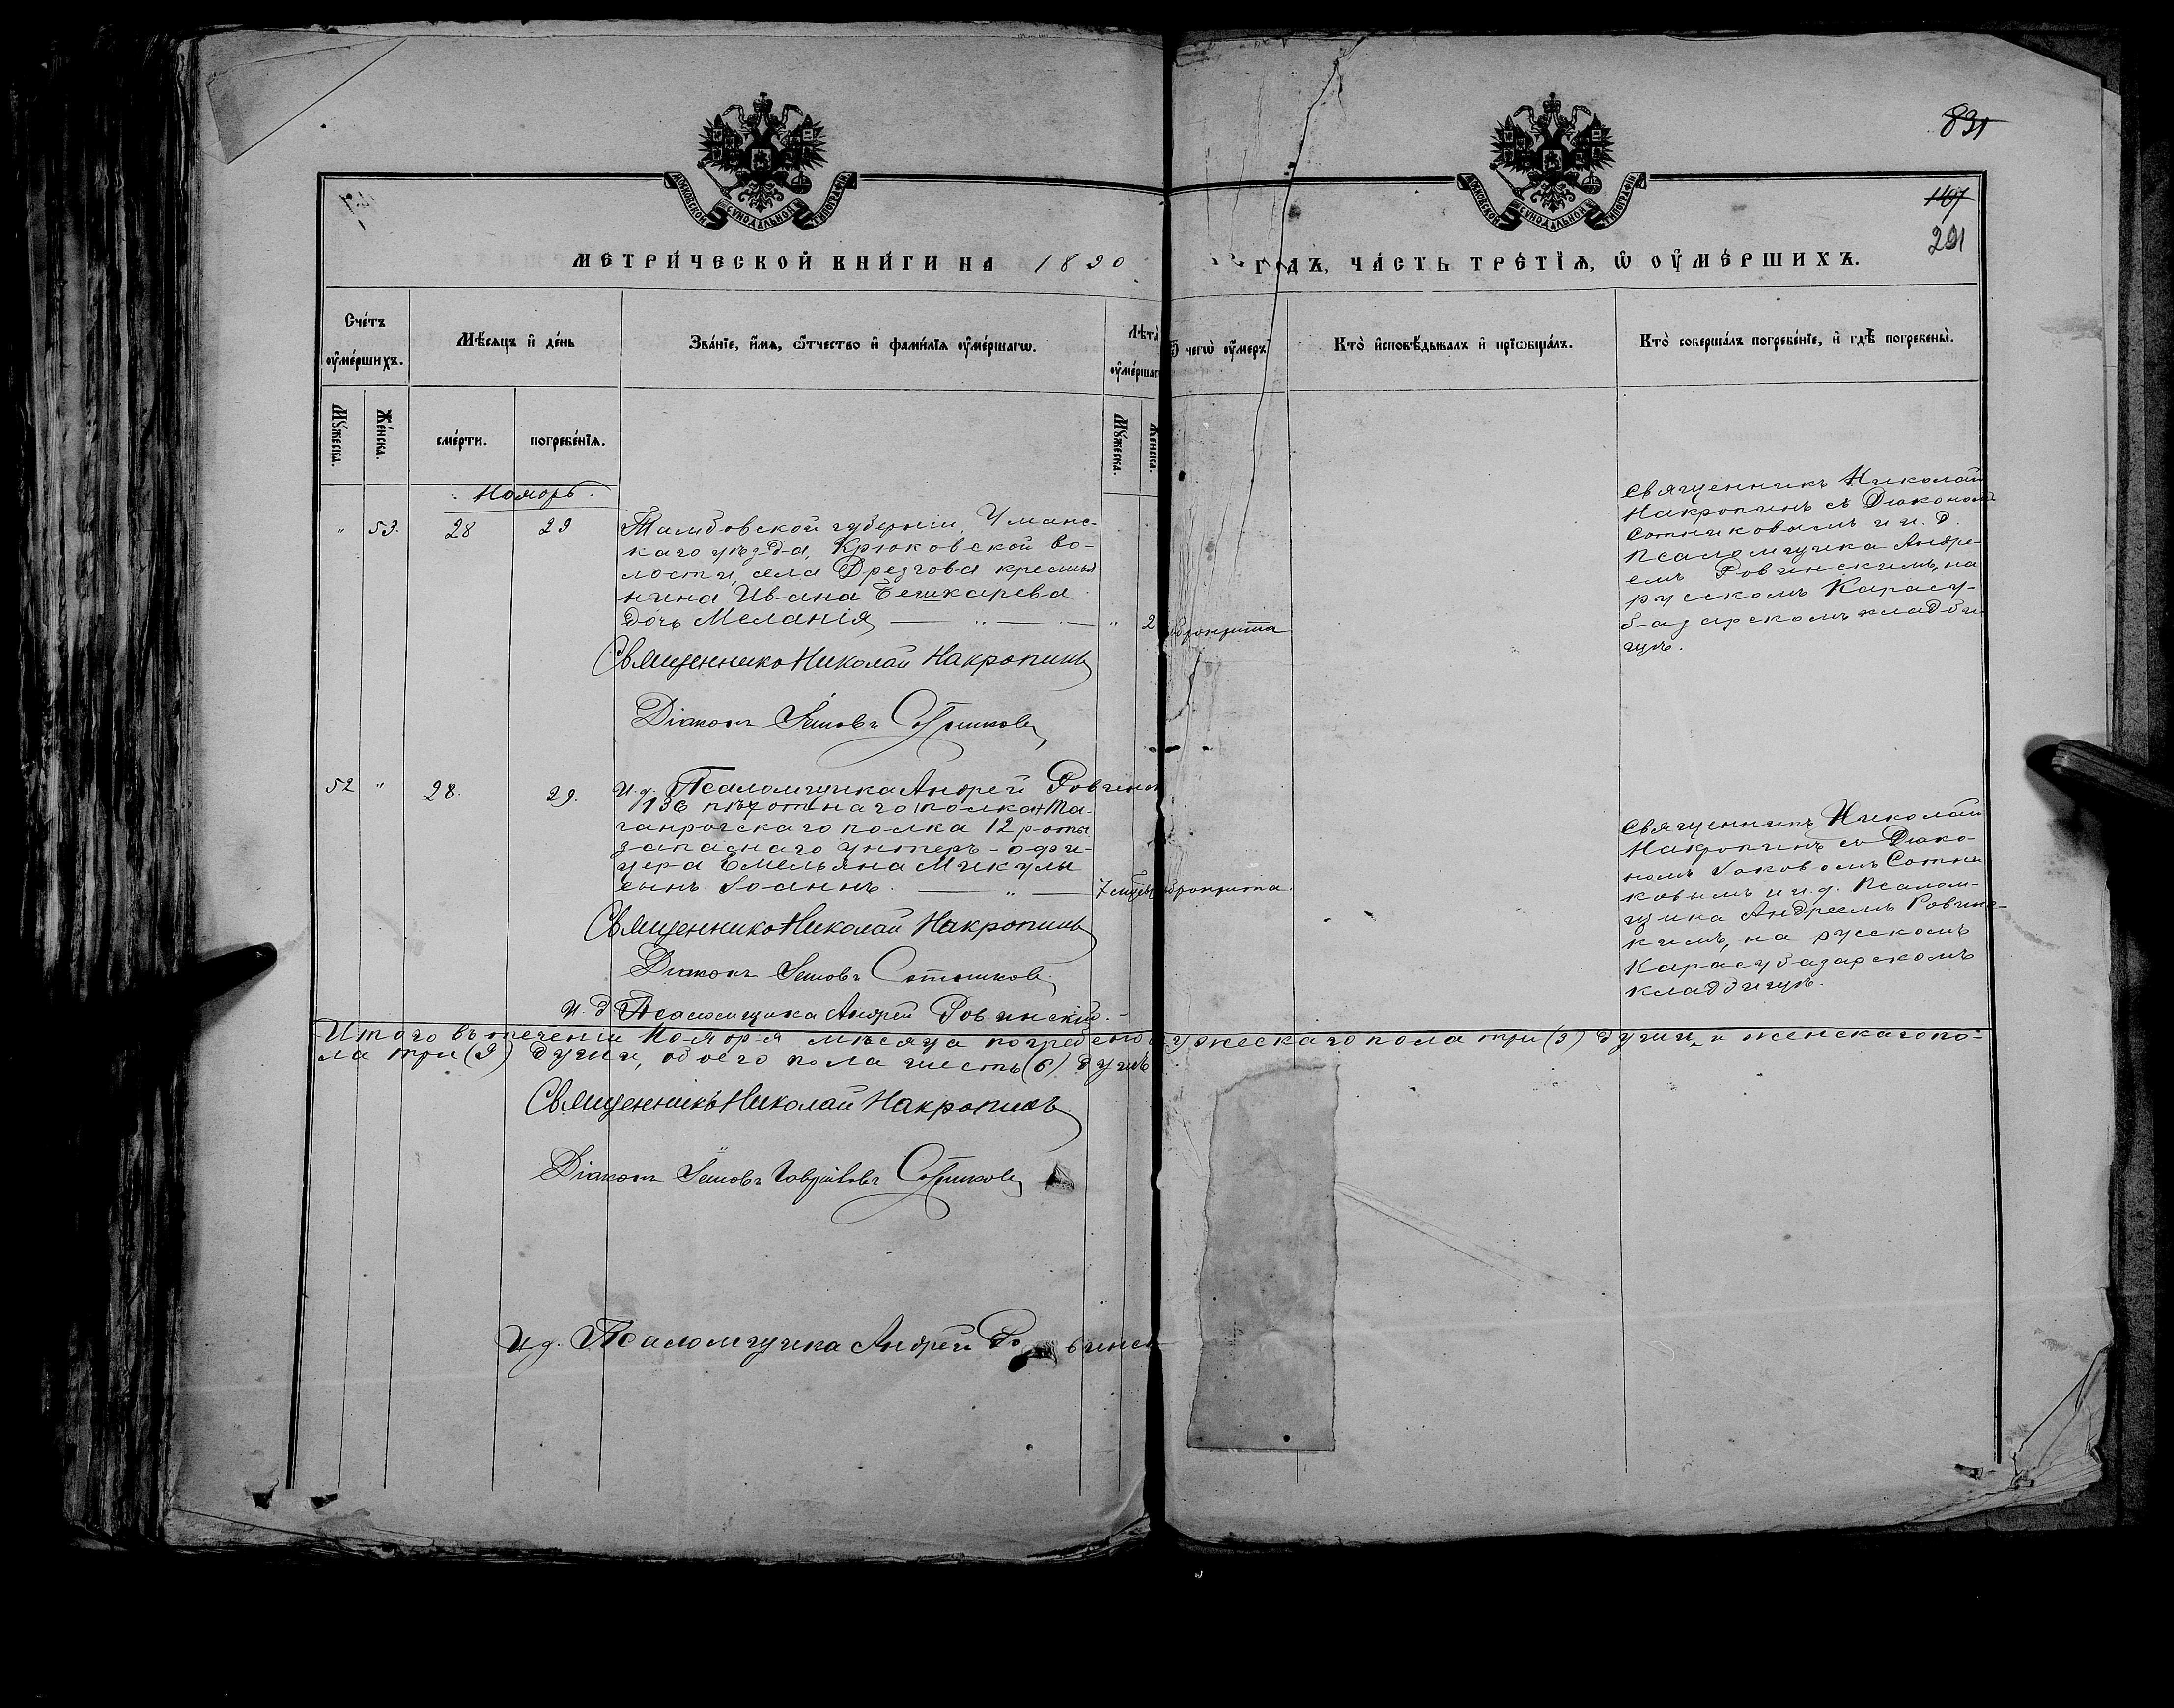 831
1107
291
МОСКОВСКОЙ СѴНОДАЛЬНОЙ ТИПОГРАФІИ
МОСКОВСКОЙ СѴНОДАЛЬНОЙ ТИПОГРАФІИ
МЕТРИ́ЧЕСКОЙ КНИ́ГИ НА 1890 ГОДЪ, ЧА́СТЬ ТРЕ́ТІѦ, Ѡ ОУМЕ́РШИХЪ.
Сче́тъ оуме́ршихъ.
Мѣ́сяцъ и де́нь
Зва́ніе, и́мя, ѻ́тчество и фами́лія оуме́ршагѡ.
Лѣта̀ оуме́ршаг
Ѿ чегѡ̀ оу́меръ
Кто̀ исповѣ́дывалъ и пріѡбща́лъ.
Кто̀ соверша́лъ погребе́ніе, и гдѣ̀ погребены̀.
Мꙋ́жеска.
Же́нска.
сме́рти.
погребе́нія.
Мꙋ́жеска.
Же́нска.
Ноябрь.
" 53. 28 29
Тамбовской губерніи, Уманс-
каго уѣзда, Крюковской во-
лости, села Дрезгова крестья-
нина Ивана Бешкарева
дочь Меланія — " — " 2 бронхита
Священникъ Николай
Накропинъ съ Діакономъ
Сотниковымъ и и. д.
псаломщика Андре-
емъ Ровинскимъ, на
русскомъ Карасу-
базарскомъ кладби-
щѣ.
Священникъ Николай Накропинъ
Діаконъ Іаковъ Сотников
52 " 28. 29.
И. д. Псаломщика Андрей Ровинск
136 пѣхотнаго полка Та-
ганрогскаго полка 12 роты
запаснаго унтеръ-офи-
цера Емельяна Микулы
сынъ Іоаннъ. — " — 7 мѣс бронхита.
Священникъ Николай
Накропинъ съ Діако-
номъ Іаковомъ Сотни
ковымъ и и. д. Псалом-
щика Андреемъ Ровинс-
кимъ, на русскомъ
Карасубазарскомъ
кладбищѣ.
Священникъ Николай Накропинъ
Діаконъ Іаковъ Сотников
И. д. Псаломщика Андрей Ровинскій.
Итого въ теченіи Ноября мѣсяца погребено мужескаго пола три (3) души, и женскаго по-
ла три (3) души, обоего пола шесть (6) душъ
Священникъ Николай Накропинъ
Діаконъ Іаковъ Гавриловъ Сотников
И д. Псаломщика Андрей Ровинск